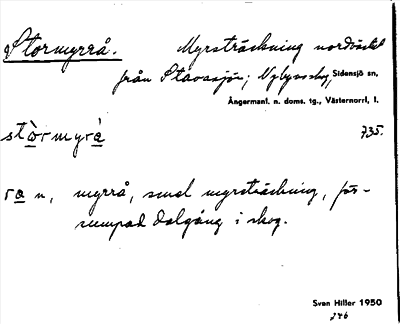 Stormyrrå. Myrsträckning nordväst
från Stavasjön; Nybynskog, Sidensjö sn,
Ångermanl. n. doms. tg., Västernorrl. l.
stòrmyrá 735.
ra n, myrrå, smal myrsträckning, för-
sumpad dalgång i skog.
Sven Hiller 1950
746